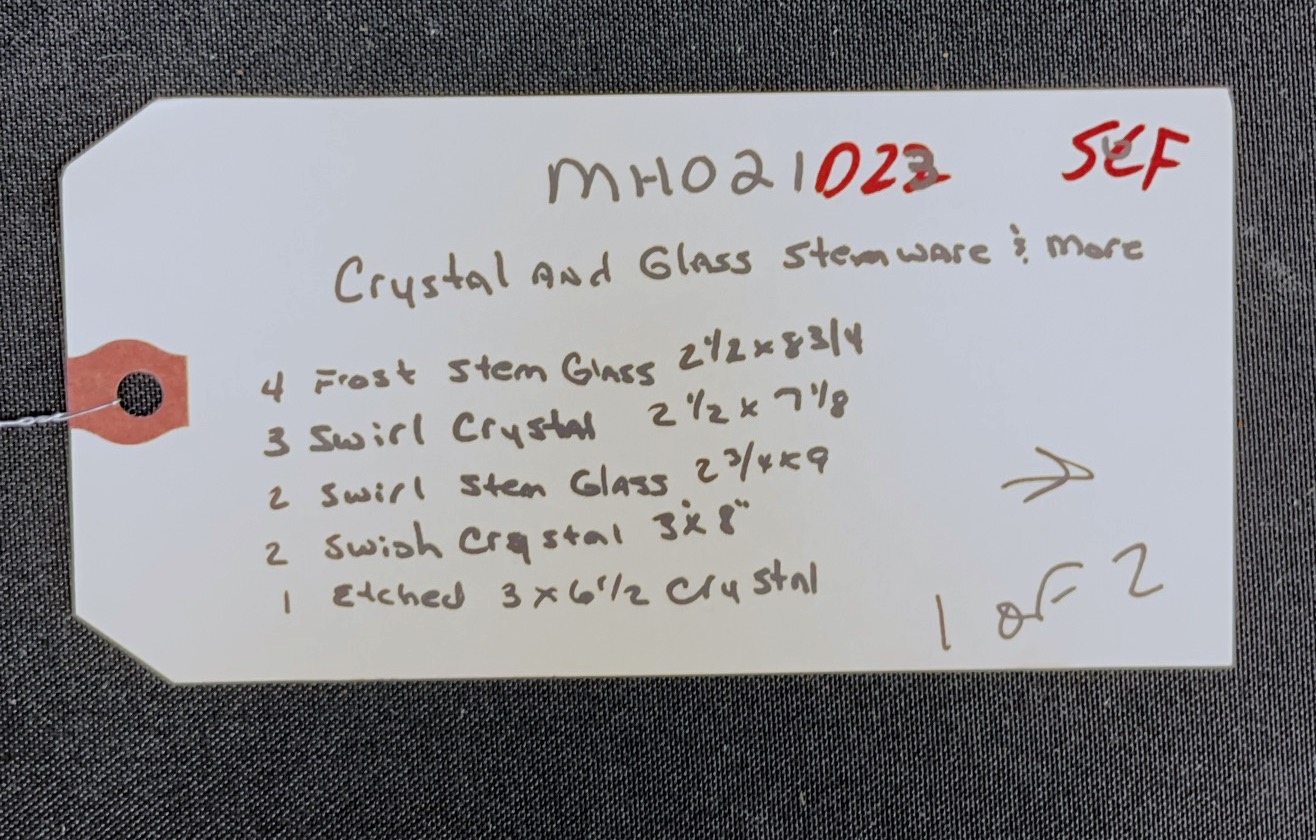 MH021D23 SEF
Crystal And Glass Stemware & More
4 Frost Stem Glass 2 1/2 x 8 3/4
3 Swirl Crystal 2 1/2 x 7 1/8
2 Swirl Stem Glass 2 3/4 x 9
2 Swish Crystal 3" x 8"
1 Etched 3 x 6 1/2 Crystal
→
1 of 2